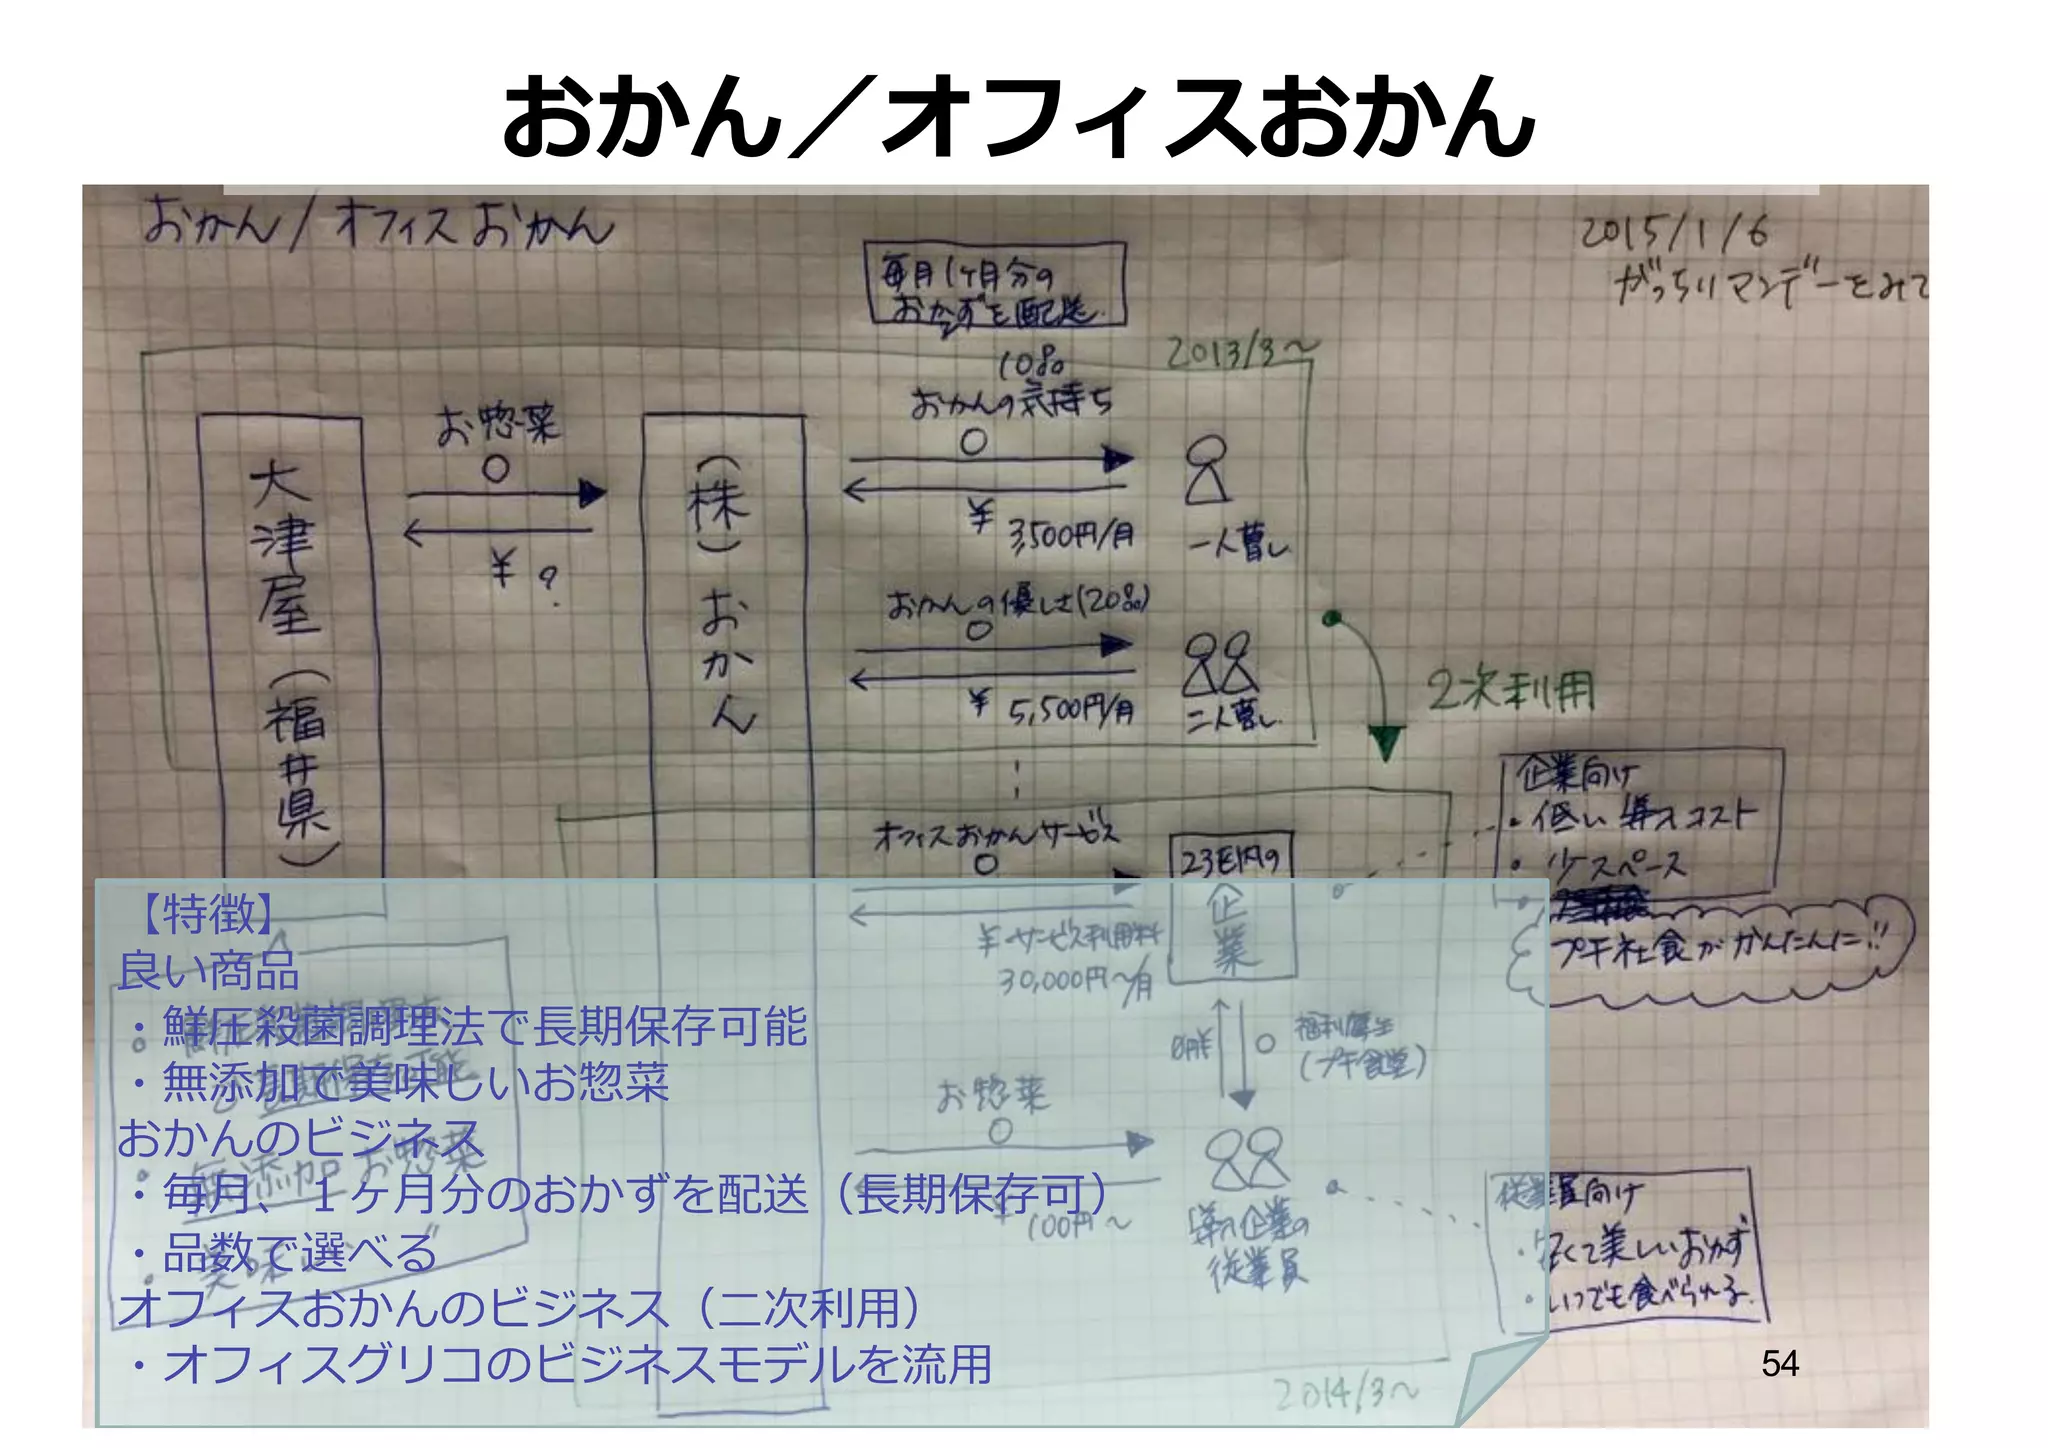 おかん／オフィスおかん
おかん/オフィスおかん
2015/1/6
がっちりマンデーをみて
毎月1ヶ月分の
おかずを配送.
2013/3〜
10品
おかんの気持ち
お惣菜
¥
3,500円/月
一人暮し
¥ ?
大津屋(福井県)
(株)おかん
おかんの優しさ(20品)
¥
5,500円/月
二人暮し
2次利用
企業向け
・低い導入コスト
・少スペース
プチ社食がかんたんに!!
オフィスおかんサービス
23区内の
企業
¥サービス利用料
30,000円〜/月
福利厚生
(プチ食堂)
お惣菜
¥
100円〜
導入企業の
従業員
従業員向け
・安くて美しいおかず
・いつでも食べられる.
2014/3〜
無添加お惣菜
【特徴】
良い商品
・鮮圧殺菌調理法で長期保存可能
・無添加で美味しいお惣菜
おかんのビジネス
・毎月、１ヶ月分のおかずを配送（長期保存可）
・品数で選べる
オフィスおかんのビジネス（二次利用）
・オフィスグリコのビジネスモデルを流用
54